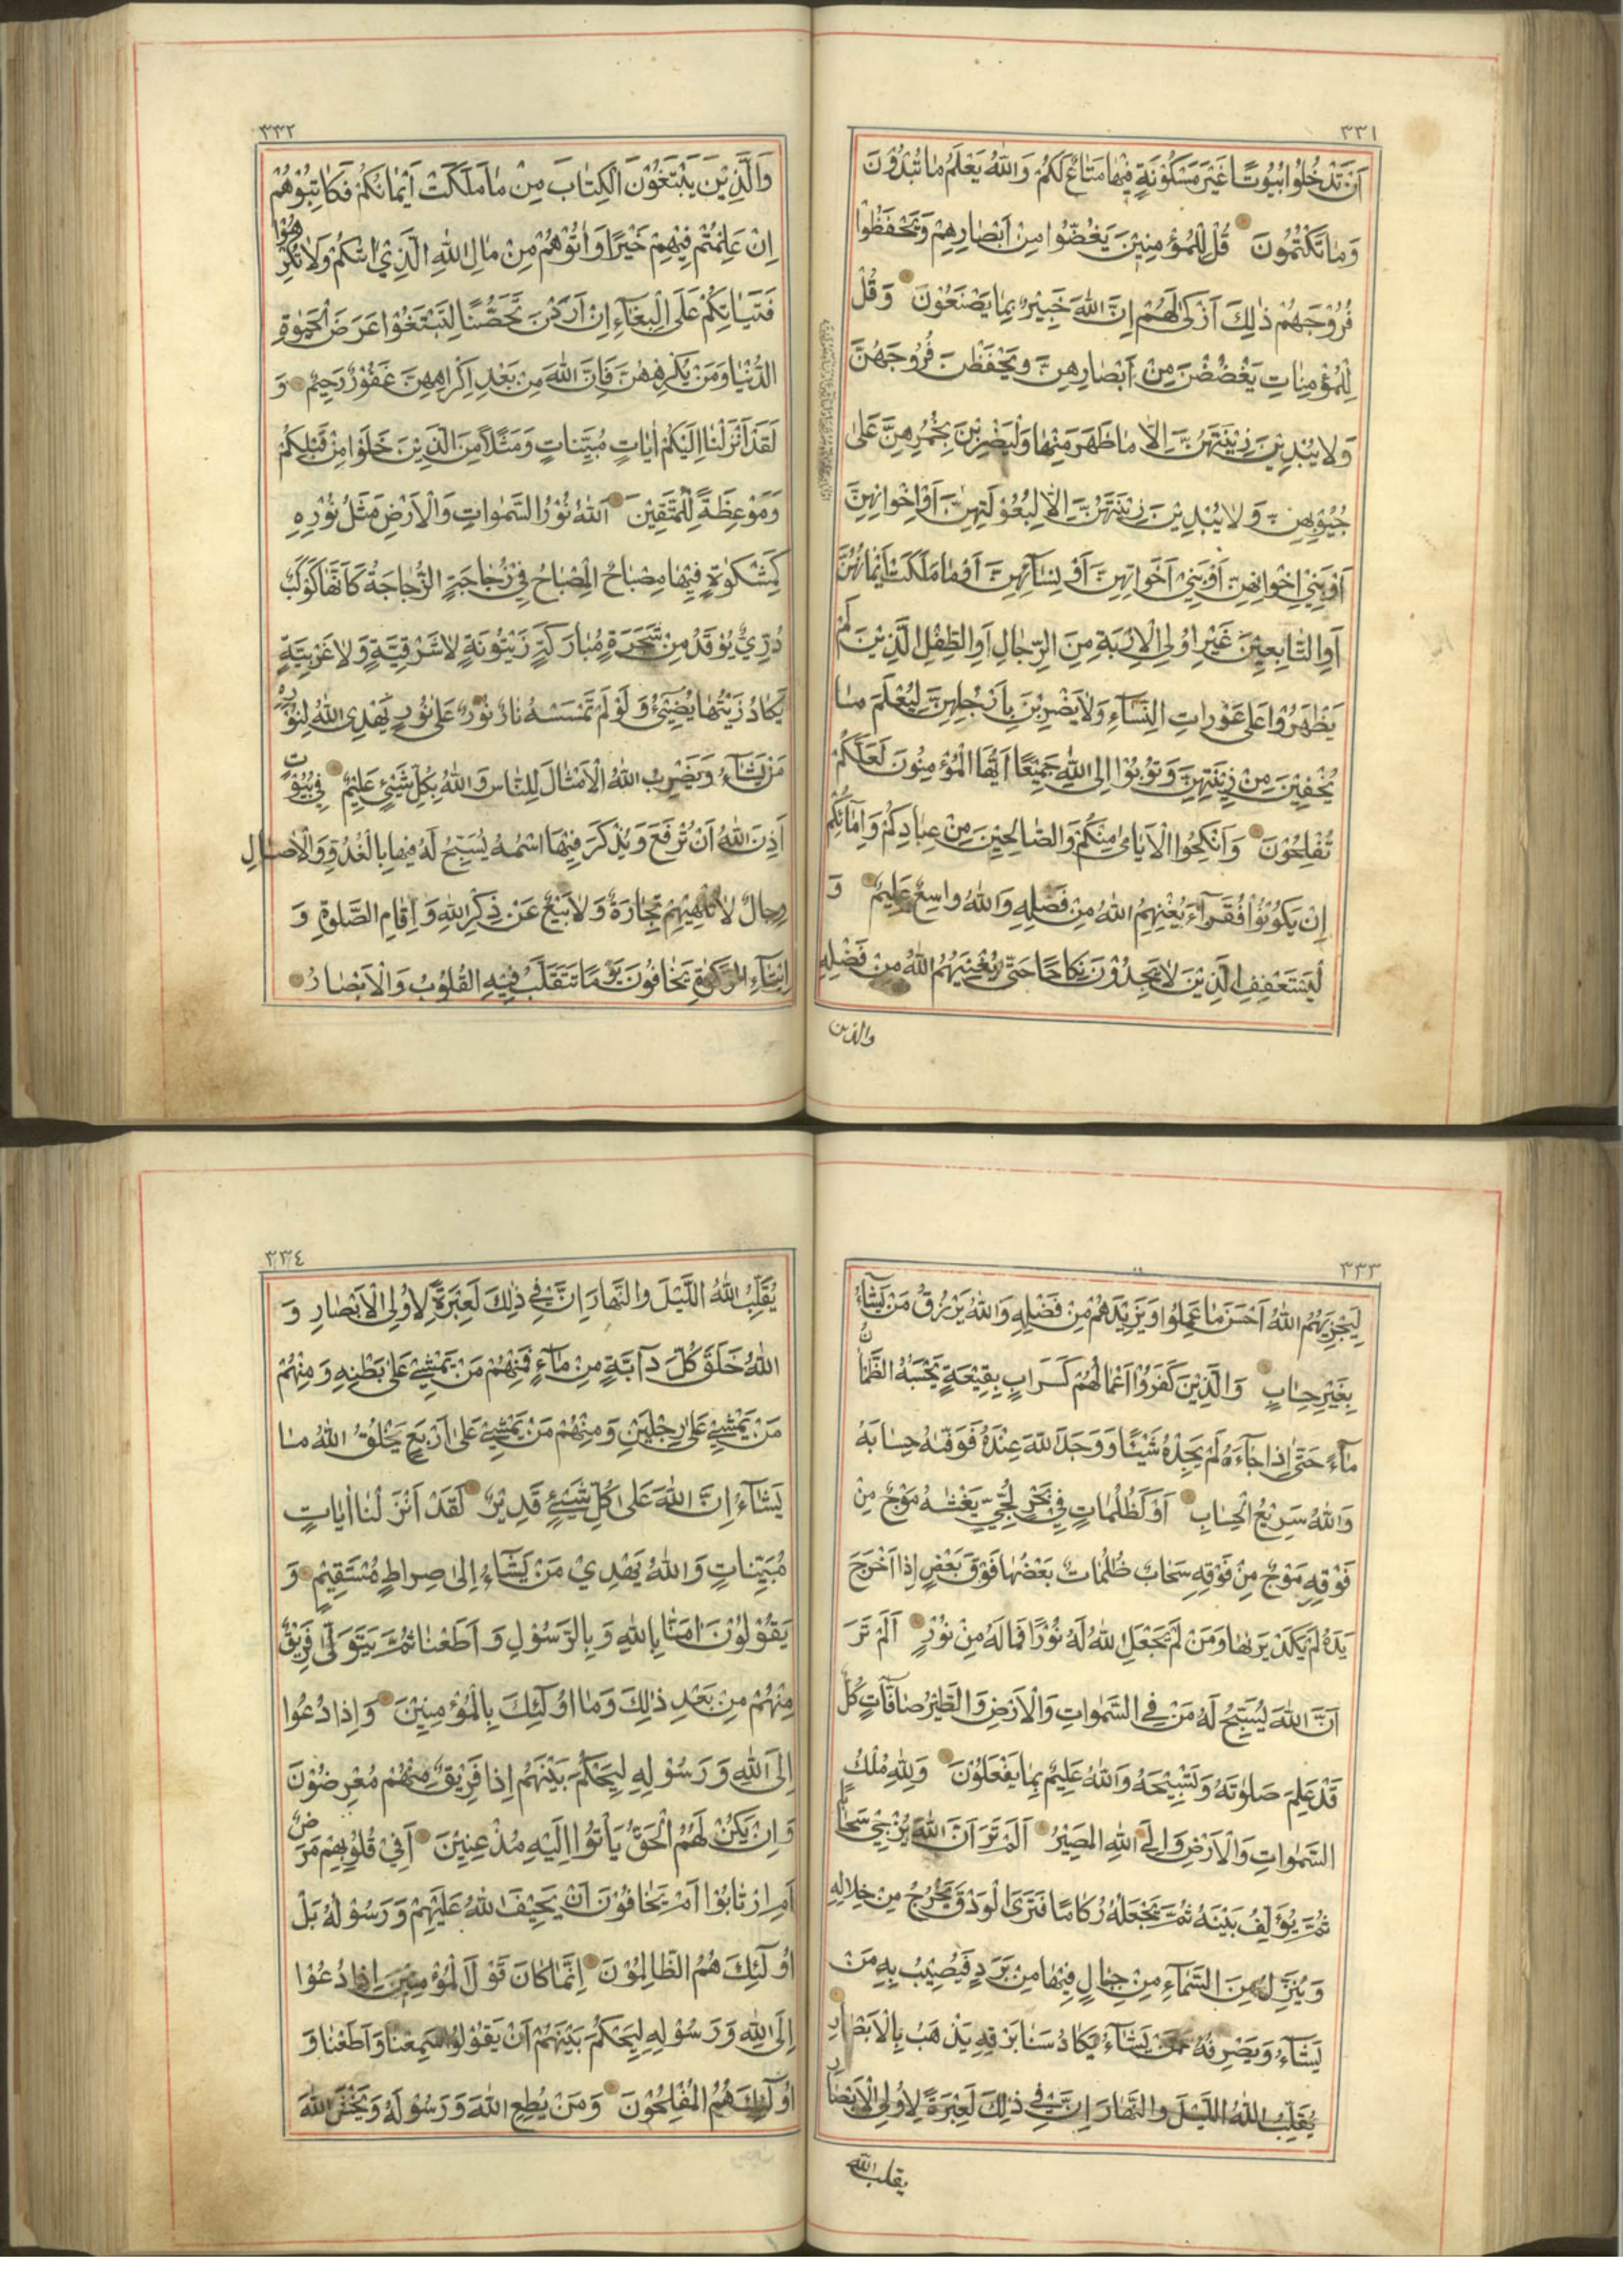 ٣٣١
اَنْ تَدْخُلُوا بُيُوتًا غَيْرَ مَسْكُوْنَةٍ فِيْهَا مَتَاعٌ لَكُمْ وَاللّٰهُ يَعْلَمُ مَا تُبْدُوْنَ
وَمَا تَكْتُمُونَ قُلْ لِلْمُؤْمِنِيْنَ يَغُضُّوا مِنْ اَبْصَارِهِمْ وَيَحْفَظُوْا
فُرُوْجَهُمْ ذٰلِكَ اَزْكٰى لَهُمْ اِنَّ اللّٰهَ خَبِيْرٌ بِمَا يَصْنَعُوْنَ وَقُلْ
لِلْمُؤْمِنَاتِ يَغْضُضْنَ مِنْ اَبْصَارِهِنَّ وَيَحْفَظْنَ فُرُوجَهُنَّ
وَلَا يُبْدِيْنَ زِيْنَتَهُنَّ اِلَّا مَا ظَهَرَ مِنْهَا وَلْيَضْرِبْنَ بِخُمُرِهِنَّ عَلٰى
جُيُوْبِهِنَّ وَلَا يُبْدِيْنَ زِيْنَتَهُنَّ اِلَّا لِبُعُوْلَتِهِنَّ اَوْ اِخْوَانِهِنَّ
اَوْ بَنِيْ اِخْوَانِهِنَّ اَوْ بَنِيْ اَخَوَاتِهِنَّ اَوْ نِسَآئِهِنَّ اَوْ مَا مَلَكَتْ اَيْمَانُهُنَّ
اَوِ التَّابِعِيْنَ غَيْرِ اُولِي الْاِرْبَةِ مِنَ الرِّجَالِ اَوِ الطِّفْلِ الَّذِيْنَ لَمْ
يَظْهَرُوْا عَلٰى عَوْرَاتِ النِّسَآءِ وَلَا يَضْرِبْنَ بِاَرْجُلِهِنَّ لِيُعْلَمَ مَا
يُخْفِيْنَ مِنْ زِيْنَتِهِنَّ وَتُوْبُوْا اِلَى اللّٰهِ جَمِيْعًا اَيُّهَا الْمُؤْمِنُوْنَ لَعَلَّكُمْ
تُفْلِحُوْنَ وَاَنْكِحُوا الْاَيَامٰى مِنْكُمْ وَالصَّالِحِيْنَ مِنْ عِبَادِكُمْ وَاِمَآئِكُمْ
اِنْ يَكُوْنُوْا فُقَرَآءَ يُغْنِهِمُ اللّٰهُ مِنْ فَضْلِهِ وَاللّٰهُ وَاسِعٌ عَلِيْمٌ وَ
لْيَسْتَعْفِفِ الَّذِيْنَ لَا يَجِدُوْنَ نِكَاحًا حَتّٰى يُغْنِيَهُمُ اللّٰهُ مِنْ فَضْلِهِ
والذين
٣٣٢
وَالَّذِيْنَ يَبْتَغُوْنَ الْكِتَابَ مِنْ مَا مَلَكَتْ اَيْمَانُكُمْ فَكَاتِبُوْهُمْ
اِنْ عَلِمْتُمْ فِيْهِمْ خَيْرًا وَاٰتُوْهُمْ مِنْ مَالِ اللّٰهِ الَّذِيْ اٰتٰكُمْ وَلَا تُكْرِهُوْا
فَتَيَاتِكُمْ عَلَى الْبِغَآءِ اِنْ اَرَدْنَ تَحَصُّنًا لِتَبْتَغُوْا عَرَضَ الْحَيٰوةِ
الدُّنْيَا وَمَنْ يُكْرِهْهُنَّ فَاِنَّ اللّٰهَ مِنْ بَعْدِ اِكْرَاهِهِنَّ غَفُوْرٌ رَحِيْمٌ وَ
لَقَدْ اَنْزَلْنَا اِلَيْكُمْ اٰيَاتٍ مُبَيِّنَاتٍ وَمَثَلًا مِنَ الَّذِيْنَ خَلَوْا مِنْ قَبْلِكُمْ
وَمَوْعِظَةً لِلْمُتَّقِيْنَ اَللّٰهُ نُوْرُ السَّمٰوَاتِ وَالْاَرْضِ مَثَلُ نُوْرِهِ
كَمِشْكٰوةٍ فِيْهَا مِصْبَاحٌ الْمِصْبَاحُ فِيْ زُجَاجَةٍ الزُّجَاجَةُ كَاَنَّهَا كَوْكَبٌ
دُرِّيٌّ يُوْقَدُ مِنْ شَجَرَةٍ مُبَارَكَةٍ زَيْتُوْنَةٍ لَا شَرْقِيَّةٍ وَلَا غَرْبِيَّةٍ
يَكَادُ زَيْتُهَا يُضِيْٓئُ وَلَوْ لَمْ تَمْسَسْهُ نَارٌ نُوْرٌ عَلٰى نُوْرٍ يَهْدِى اللّٰهُ لِنُوْرِهِ
مَنْ يَشَآءُ وَيَضْرِبُ اللّٰهُ الْاَمْثَالَ لِلنَّاسِ وَاللّٰهُ بِكُلِّ شَيْئٍ عَلِيْمٌ فِيْ بُيُوْتٍ
اَذِنَ اللّٰهُ اَنْ تُرْفَعَ وَيُذْكَرَ فِيْهَا اسْمُهُ يُسَبِّحُ لَهُ فِيْهَا بِالْغُدُوِّ وَالْاٰصَالِ
رِجَالٌ لَا تُلْهِيْهِمْ تِجَارَةٌ وَلَا بَيْعٌ عَنْ ذِكْرِ اللّٰهِ وَاِقَامِ الصَّلٰوةِ وَ
اِيْتَآءِ الزَّكٰوةِ يَخَافُوْنَ يَوْمًا تَتَقَلَّبُ فِيْهِ الْقُلُوْبُ وَالْاَبْصَارُ
٣٣٣
لِيَجْزِيَهُمُ اللّٰهُ اَحْسَنَ مَا عَمِلُوْا وَيَزِيْدَهُمْ مِنْ فَضْلِهِ وَاللّٰهُ يَرْزُقُ مَنْ يَشَآءُ
بِغَيْرِ حِسَابٍ وَالَّذِيْنَ كَفَرُوْا اَعْمَالُهُمْ كَسَرَابٍ بِقِيْعَةٍ يَحْسَبُهُ الظَّمْاٰنُ
مَآءً حَتّٰى اِذَا جَآءَهُ لَمْ يَجِدْهُ شَيْئًا وَوَجَدَ اللّٰهَ عِنْدَهُ فَوَفّٰهُ حِسَابَهُ
وَاللّٰهُ سَرِيْعُ الْحِسَابِ اَوْ كَظُلُمَاتٍ فِيْ بَحْرٍ لُجِّيٍّ يَغْشٰهُ مَوْجٌ مِنْ
فَوْقِهِ مَوْجٌ مِنْ فَوْقِهِ سَحَابٌ ظُلُمَاتٌ بَعْضُهَا فَوْقَ بَعْضٍ اِذَا اَخْرَجَ
يَدَهُ لَمْ يَكَدْ يَرٰىهَا وَمَنْ لَمْ يَجْعَلِ اللّٰهُ لَهُ نُوْرًا فَمَا لَهُ مِنْ نُوْرٍ اَلَمْ تَرَ
اَنَّ اللّٰهَ يُسَبِّحُ لَهُ مَنْ فِي السَّمٰوَاتِ وَالْاَرْضِ وَالطَّيْرُ صَآفَّاتٍ كُلٌّ
قَدْ عَلِمَ صَلٰوتَهُ وَتَسْبِيْحَهُ وَاللّٰهُ عَلِيْمٌ بِمَا يَفْعَلُوْنَ وَلِلّٰهِ مُلْكُ
السَّمٰوَاتِ وَالْاَرْضِ وَاِلَى اللّٰهِ الْمَصِيْرُ اَلَمْ تَرَ اَنَّ اللّٰهَ يُزْجِيْ سَحَابًا
ثُمَّ يُؤَلِّفُ بَيْنَهُ ثُمَّ يَجْعَلُهُ رُكَامًا فَتَرَى الْوَدْقَ يَخْرُجُ مِنْ خِلَالِهِ
وَيُنَزِّلُ مِنَ السَّمَآءِ مِنْ جِبَالٍ فِيْهَا مِنْ بَرَدٍ فَيُصِيْبُ بِهِ مَنْ
يَشَآءُ وَيَصْرِفُهُ عَمَّنْ يَشَآءُ يَكَادُ سَنَا بَرْقِهِ يَذْهَبُ بِالْاَبْصَارِ
يُقَلِّبُ اللّٰهُ اللَّيْلَ وَالنَّهَارَ اِنَّ فِيْ ذٰلِكَ لَعِبْرَةً لِاُولِي الْاَبْصَارِ
يقلب الله
٣٣٤
يُقَلِّبُ اللّٰهُ اللَّيْلَ وَالنَّهَارَ اِنَّ فِيْ ذٰلِكَ لَعِبْرَةً لِاُولِي الْاَبْصَارِ وَ
اللّٰهُ خَلَقَ كُلَّ دَآبَّةٍ مِنْ مَآءٍ فَمِنْهُمْ مَنْ يَمْشِيْ عَلٰى بَطْنِهِ وَمِنْهُمْ
مَنْ يَمْشِيْ عَلٰى رِجْلَيْنِ وَمِنْهُمْ مَنْ يَمْشِيْ عَلٰى اَرْبَعٍ يَخْلُقُ اللّٰهُ مَا
يَشَآءُ اِنَّ اللّٰهَ عَلٰى كُلِّ شَيْءٍ قَدِيْرٌ لَقَدْ اَنْزَلْنَا اٰيَاتٍ
مُبَيِّنَاتٍ وَاللّٰهُ يَهْدِيْ مَنْ يَشَآءُ اِلٰى صِرَاطٍ مُسْتَقِيْمٍ وَ
يَقُوْلُوْنَ اٰمَنَّا بِاللّٰهِ وَبِالرَّسُوْلِ وَاَطَعْنَا ثُمَّ يَتَوَلّٰى فَرِيْقٌ
مِنْهُمْ مِنْ بَعْدِ ذٰلِكَ وَمَا اُولٰٓئِكَ بِالْمُؤْمِنِيْنَ وَاِذَا دُعُوْا
اِلَى اللّٰهِ وَرَسُوْلِهِ لِيَحْكُمَ بَيْنَهُمْ اِذَا فَرِيْقٌ مِنْهُمْ مُعْرِضُوْنَ
وَاِنْ يَكُنْ لَهُمُ الْحَقُّ يَاْتُوْا اِلَيْهِ مُذْعِنِيْنَ اَفِيْ قُلُوْبِهِمْ مَرَضٌ
اَمِ ارْتَابُوْا اَمْ يَخَافُوْنَ اَنْ يَحِيْفَ اللّٰهُ عَلَيْهِمْ وَرَسُوْلُهُ بَلْ
اُولٰٓئِكَ هُمُ الظَّالِمُوْنَ اِنَّمَا كَانَ قَوْلَ الْمُؤْمِنِيْنَ اِذَا دُعُوْا
اِلَى اللّٰهِ وَرَسُوْلِهِ لِيَحْكُمَ بَيْنَهُمْ اَنْ يَقُوْلُوْا سَمِعْنَا وَاَطَعْنَا وَ
اُولٰٓئِكَ هُمُ الْمُفْلِحُوْنَ وَمَنْ يُطِعِ اللّٰهَ وَرَسُوْلَهُ وَيَخْشَ اللّٰهَ